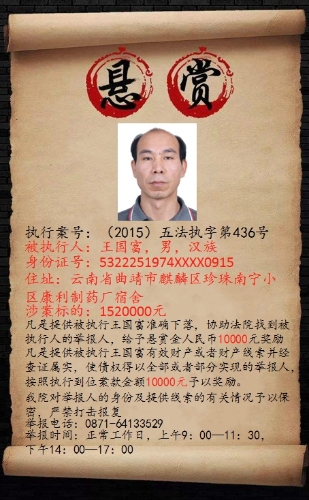 悬赏
执行案号：（2015）五法执字第436号
被执行人：王国富，男，汉族
身份证号：5322251974XXXX0915
住址：云南省曲靖市麒麟区珍珠南宁小
区康利制药厂宿舍
涉案标的：1520000元
凡是提供被执行王国富准确下落，协助法院找到被
执行人的举报人，给予悬赏金人民币10000元奖励
凡是提供被执行王国富有效财产或者财产线索并经
查证属实，使债权得以全部或者部分实现的举报人，
按照执行到位案款金额10000元予以奖励。
我院对举报人的身份及提供线索的有关情况予以保
密，严禁打击报复
举报电话：0871-64133529
举报时间：正常工作日，上午9：00—11：30，
下午14：00—17：00